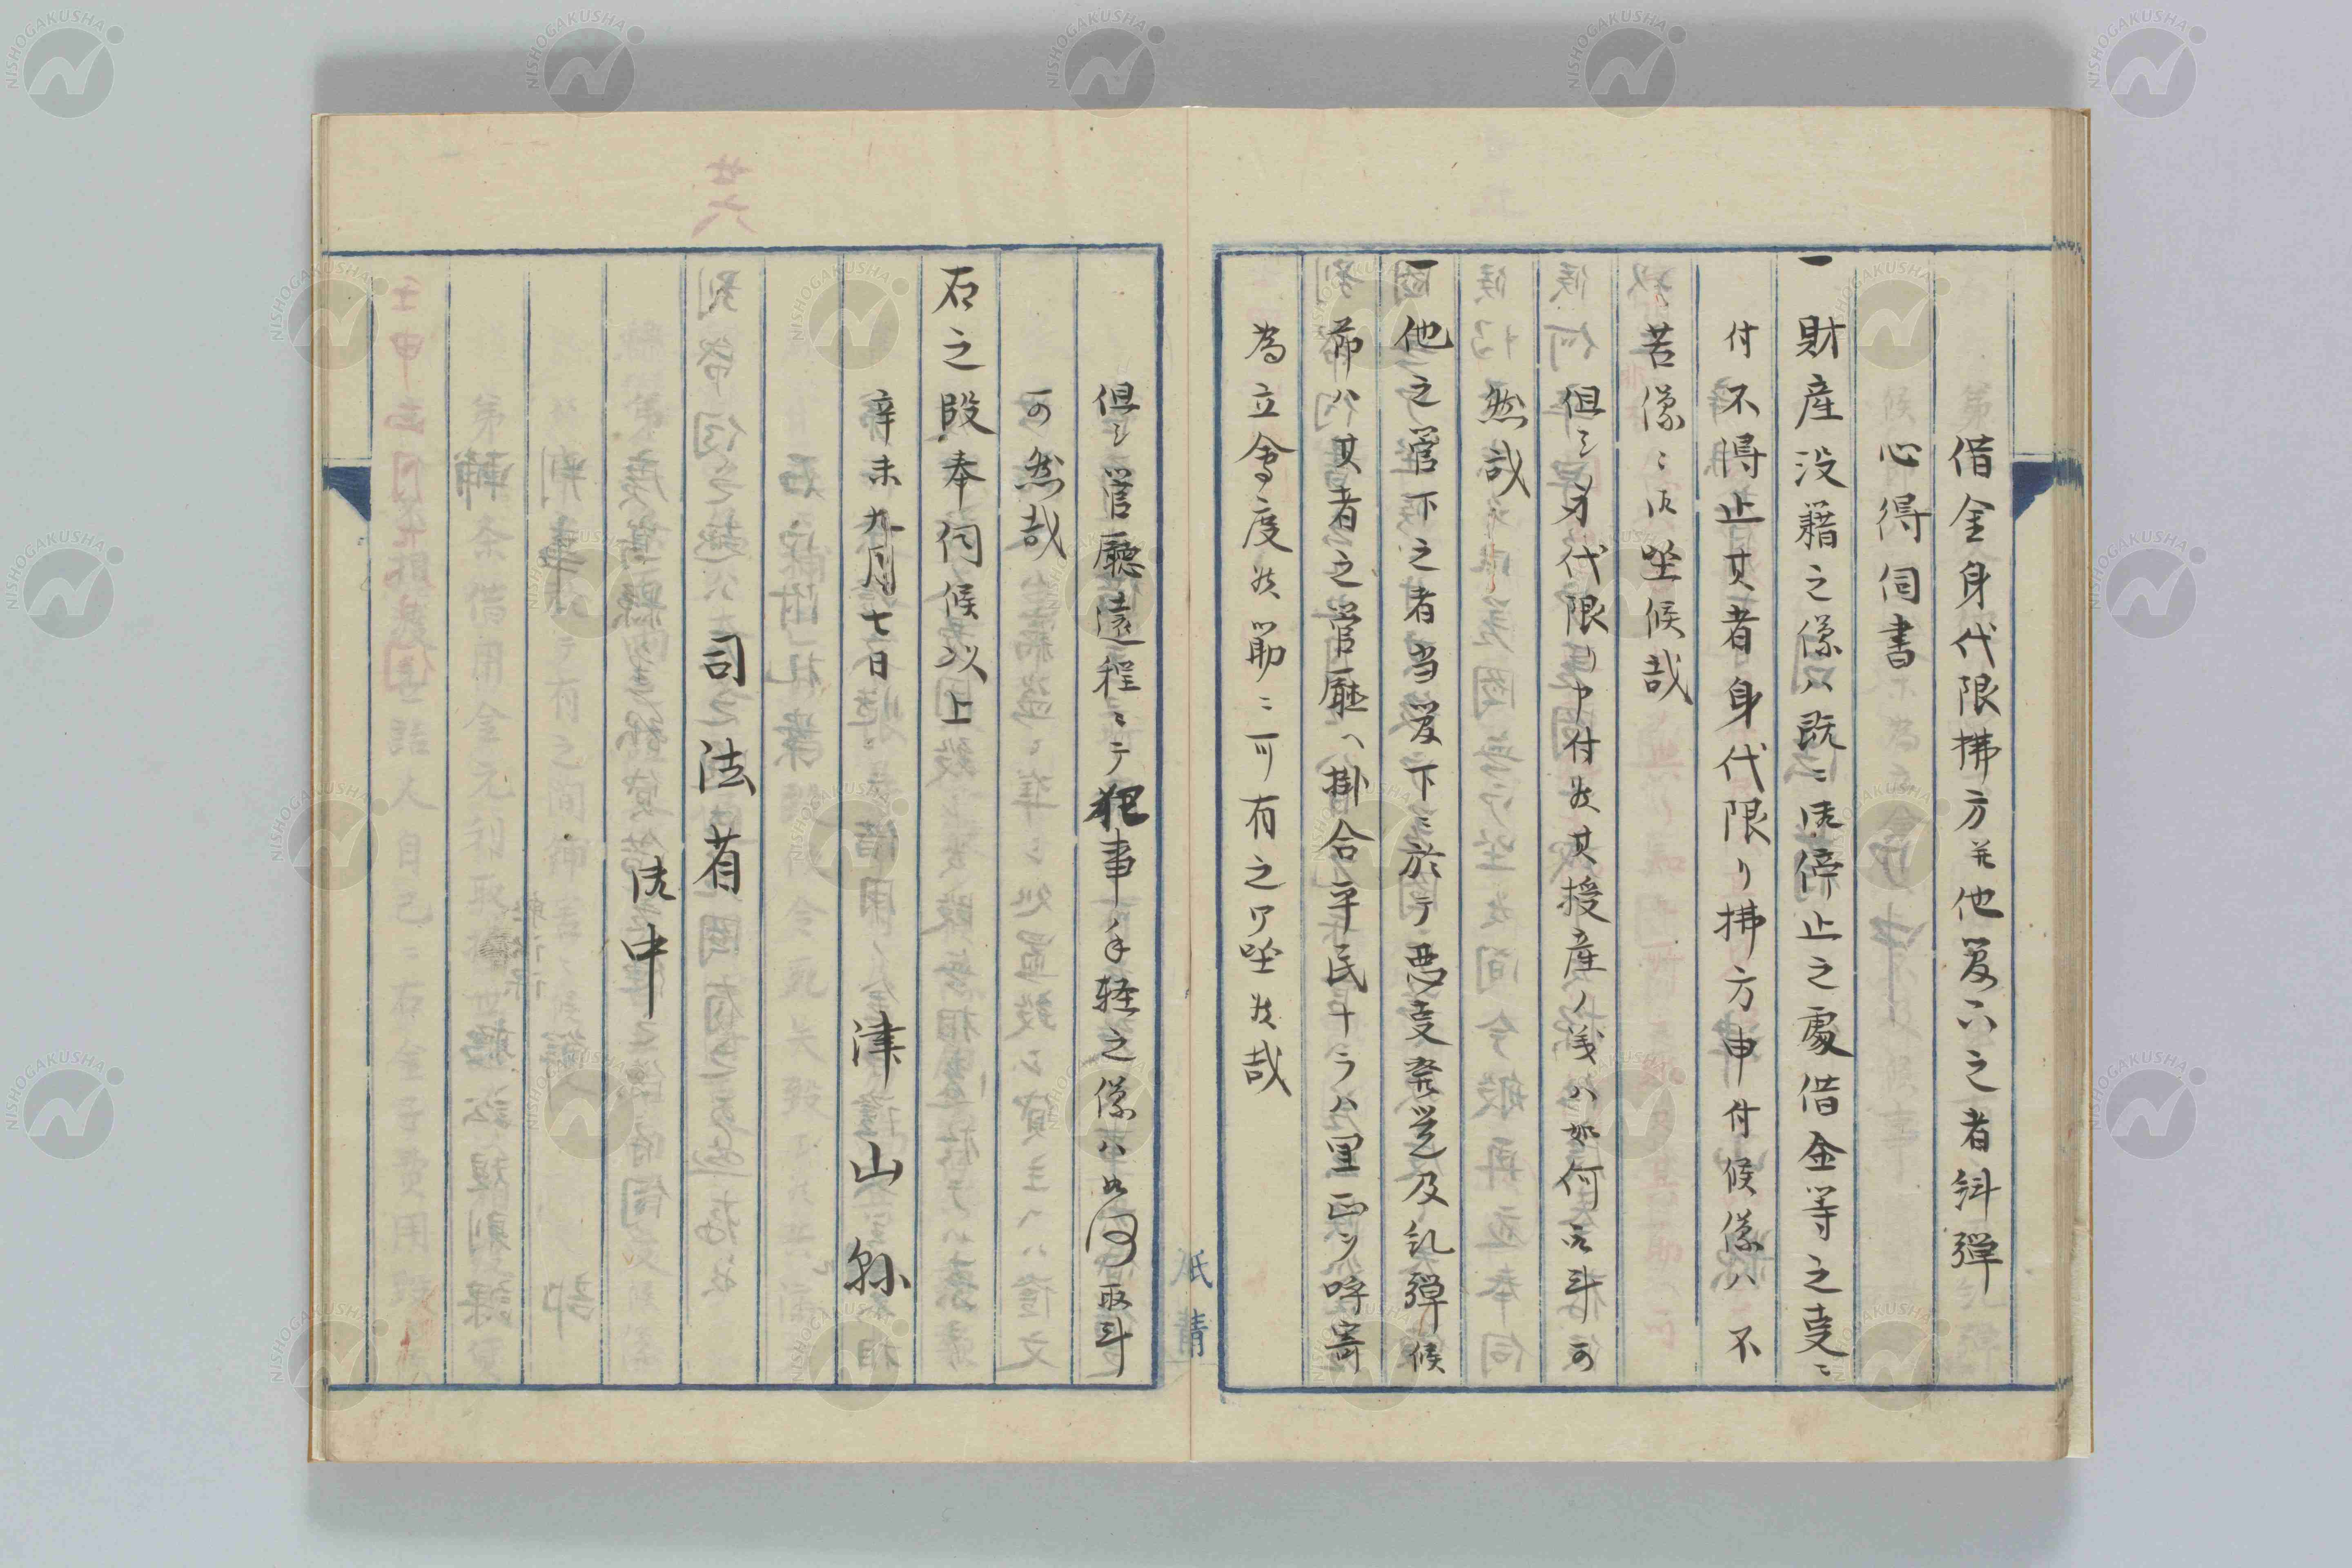 借金身代限拂方并他管下之者糾弾
心得伺書
一財産没籍之儀ハ既ニ御停止之處借金等之事ニ
付不得止其者身代限リ拂方申付候儀ハ不
苦儀ニ御坐候哉
但シ身代限リ申付候其授産ノ義ハ如何取斗可
然哉
一他之管下之者当管下ニ於テ悪事発覚及糺弾候
節ハ其者之管廳ヘ掛合平民ナラハ里正ヲ呼寄
為立會度候節ニ可有之御坐候哉
但シ管廳遠程ニテ犯事ノ手軽之儀ハ如何取斗
可然哉
右之段奉伺候以上
辛未九月七日
津山縣
司法省
御中